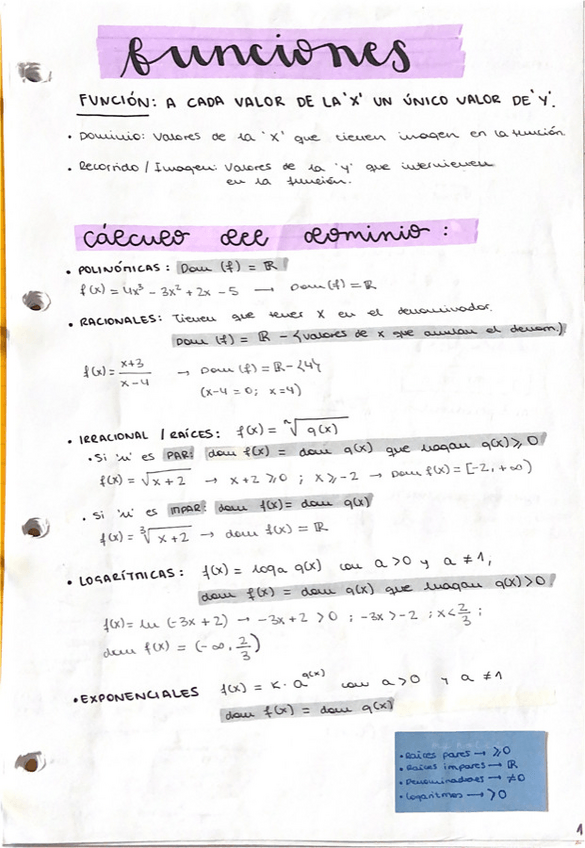 funciones
FUNCIÓN: A CADA VALOR DE LA 'X' UN ÚNICO VALOR DE 'Y'.
• Dominio: Valores de la 'X' que tienen imagen en la función
• Recorrido / Imagen: Valores de la 'y' que intervienen
en la función.
cálculo del dominio:
• POLINÓMICAS: Dom (f) = ℝ
f(x) = 4x³ - 3x² + 2x - 5 → Dom (f) = ℝ
• RACIONALES: Tienen que tener X en el denominador.
Dom (f) = ℝ - {valores de x que anulan el denom.}
f(x) = x+3 / x-4 → Dom (f) = ℝ - {4}
(x-4 = 0; x=4)
• IRRACIONAL / RAÍCES: f(x) = ⁿ√g(x)
• Si 'n' es PAR: dom f(x) = dom g(x) que hagan g(x) ≥ 0
f(x) = √x+2 → x+2 ≥ 0 ; x ≥ -2 → Dom f(x) = [-2, +∞)
• Si 'n' es IMPAR: dom f(x) = dom g(x)
f(x) = ³√x+2 → dom f(x) = ℝ
• LOGARÍTMICAS: f(x) = loga g(x) con a > 0 y a ≠ 1,
dom f(x) = dom g(x) que hagan g(x) > 0
f(x) = ln (-3x + 2) → -3x + 2 > 0 ; -3x > -2 ; x < 2/3 ;
dom f(x) = (-∞, 2/3)
• EXPONENCIALES f(x) = K · a^g(x) con a > 0 y a ≠ 1
dom f(x) = dom g(x)
• Raíces pares → ≥ 0
• Raíces impares → ℝ
• Denominadores → ≠ 0
• Logaritmos → > 0
1